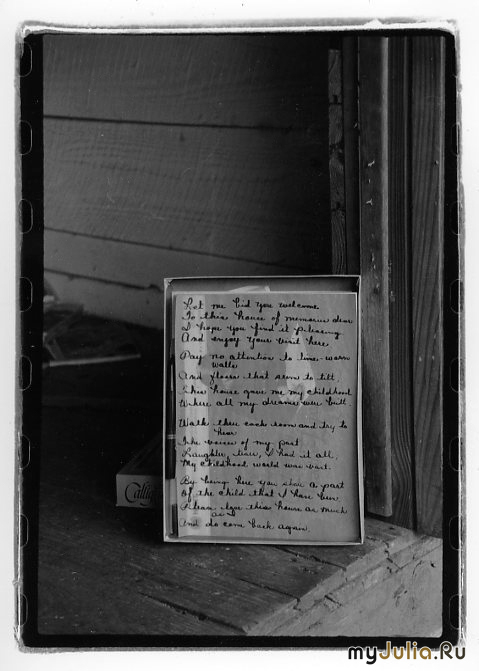 Let me bid you welcome
To this house of memories dear
I hope you find it pleasing
And enjoy your visit here
Pay no attention to time-worn
walls
And floors that seem to tilt
This house gave me my childhood
Where all my dreams were built
Walk thru each room and try to
hear
The voices of my past
Laughter, tears, I had it all,
My childhood world was vast.
By being here you share a part
Of the child that I have been
Please love this house as much
as I
And do come back again.
Callig
myJulia.Ru